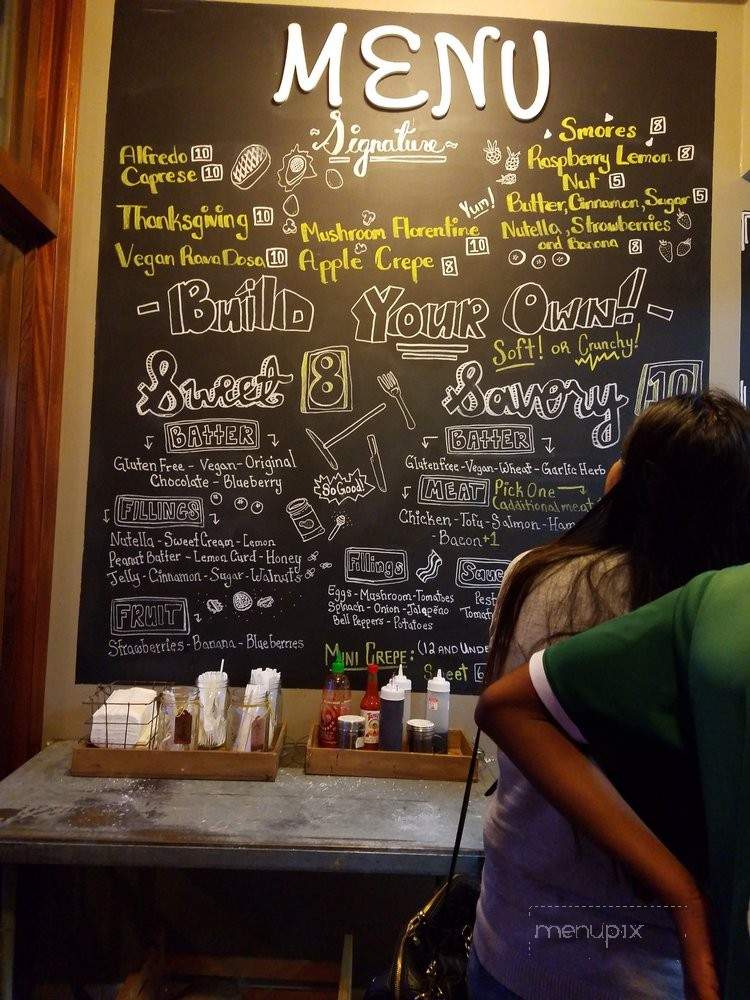 MENU
~Signature~
Alfredo 10
Caprese 10
Thanksgiving 10
Vegan Rava Dosa 10
Mushroom Florentine 10
Apple Crepe 8
Yum!
Smores 8
Raspberry Lemon 8
Nut 5
Butter, Cinnamon, Sugar 5
Nutella, Strawberries
and Banana 8
-Build Your Own!-
Soft! or Crunchy!
Sweet 8
BATTER
Gluten Free - Vegan - Original
Chocolate - Blueberry
FILLINGS
Nutella - Sweet Cream - Lemon
Peanut Batter - Lemon Curd - Honey
Jelly - Cinnamon - Sugar - Walnuts
FRUIT
Strawberries - Banana - Blueberries
So Good!
Savory 10
BATTER
Gluten Free - Vegan - Wheat - Garlic Herb
MEAT Pick One
Chicken - Tofu - Salmon - Ham
- Bacon +1
Fillings
Eggs - Mushroom - Tomatoes
Spinach - Onion - Jalapeño
Bell Peppers - Potatoes
MINI CREPE: (12 AND UNDE
Sweet 6
menupix